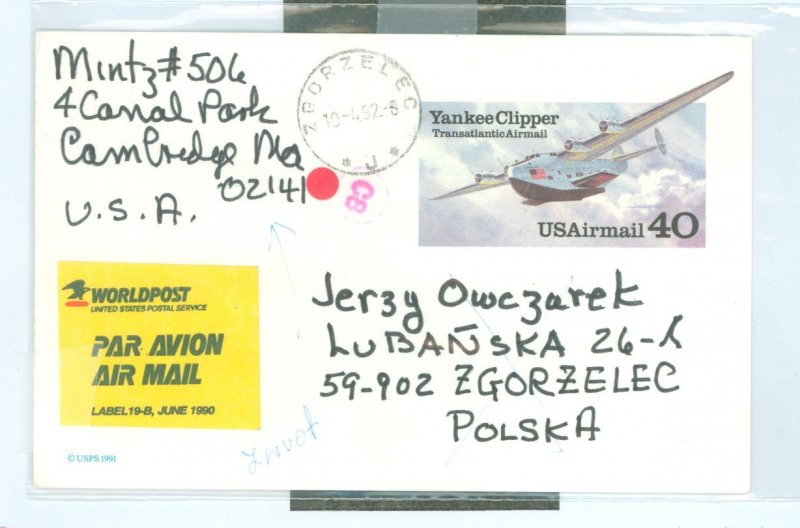 Mintz #506
4 Canal Park
Cambredge Ma
02141
U.S.A.
ZGORZELEC
10-4.92-8
* J *
C8
Yankee Clipper
Transatlantic Airmail
USAirmail 40
WORLDPOST
UNITED STATES POSTAL SERVICE
PAR AVION
AIR MAIL
LABEL 19-B, JUNE 1990
Jerzy Owczarek
LUBAŃSKA 26-
59-902 ZGORZELEC
POLSKA
zwrot
© USPS 1991